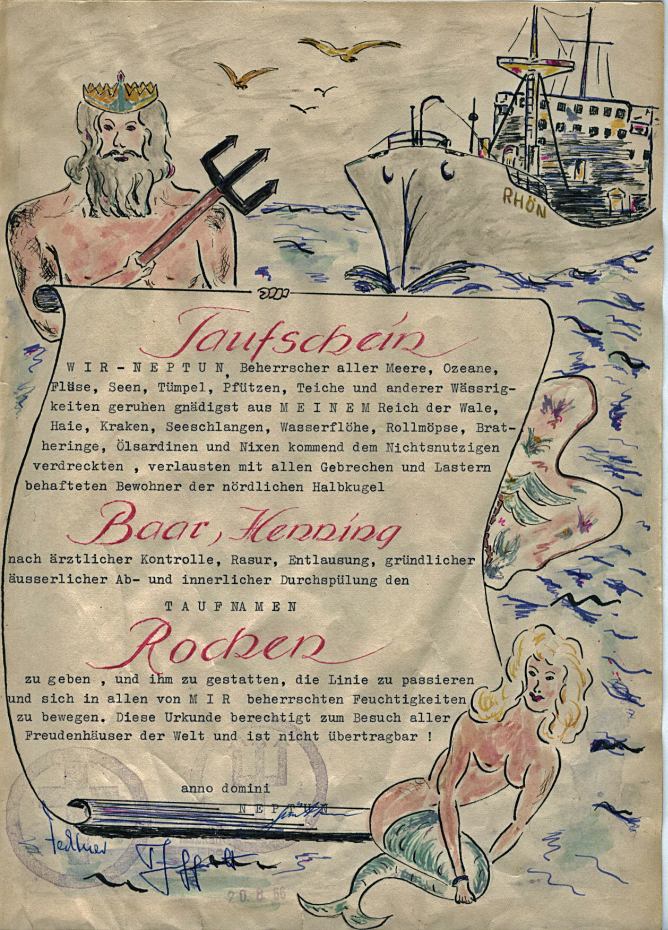 RHÖN
Taufschein
W I R - N E P T U N, Beherrscher aller Meere, Ozeane,
Flüse, Seen, Tümpel, Pfützen, Teiche und anderer Wässrig-
keiten geruhen gnädigst aus M E I N E M Reich der Wale,
Haie, Kraken, Seeschlangen, Wasserflöhe, Rollmöpse, Brat-
heringe, Ölsardinen und Nixen kommend dem Nichtsnutzigen
verdreckten , verlausten mit allen Gebrechen und Lastern
behafteten Bewohner der nördlichen Halbkugel
Baar, Henning
nach ärztlicher Kontrolle, Rasur, Entlausung, gründlicher
äusserlicher Ab- und innerlicher Durchspülung den
T A U F N A M E N
Rochen
zu geben , und ihm zu gestatten, die Linie zu passieren
und sich in allen von M I R beherrschten Feuchtigkeiten
zu bewegen. Diese Urkunde berechtigt zum Besuch aller
Freudenhäuser der Welt und ist nicht übertragbar !
anno domini
N E P T U N